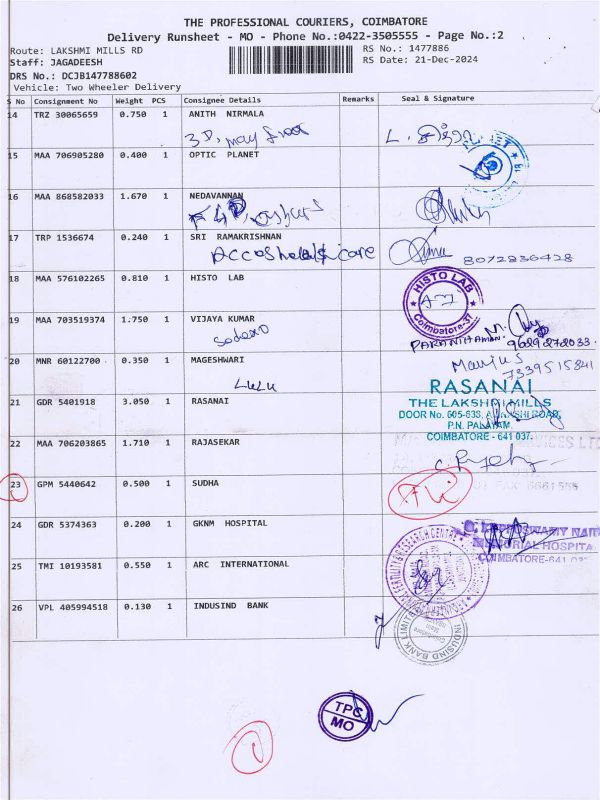 THE PROFESSIONAL COURIERS, COIMBATORE
Delivery Runsheet - MO - Phone No.:0422-3505555 - Page No.:2
Route: LAKSHMI MILLS RD
RS No.: 1477886
Staff: JAGADEESH
RS Date: 21-Dec-2024
DRS No.: DCJB147788602
Vehicle: Two Wheeler Delivery
S No Consignment No Weight PCS Consignee Details Remarks Seal & Signature
14 TRZ 30065659 0.750 1 ANITH NIRMALA
15 MAA 706905280 0.400 1 OPTIC PLANET
16 MAA 868582033 1.670 1 NEDAVANNAN
17 TRP 1536674 0.240 1 SRI RAMAKRISHNAN
8072836428
18 MAA 576102265 0.810 1 HISTO LAB
HISTO LAB
Coimbatore-37
19 MAA 703519374 1.750 1 VIJAYA KUMAR
Sodexo
9629272033
20 MNR 60122700 0.350 1 MAGESHWARI
LULU
7339515841
21 GDR 5401918 3.050 1 RASANAI
RASANAI
THE LAKSHMI MILLS
DOOR No. 605-633,
P.N. PALAYAM,
COIMBATORE - 641 037.
22 MAA 706203865 1.710 1 RAJASEKAR
23 GPM 5440642 0.500 1 SUDHA
24 GDR 5374363 0.200 1 GKNM HOSPITAL
25 TMI 10193581 0.550 1 ARC INTERNATIONAL
26 VPL 405994518 0.130 1 INDUSIND BANK
INDUSIND BANK LIMITED
TPC
MO
1